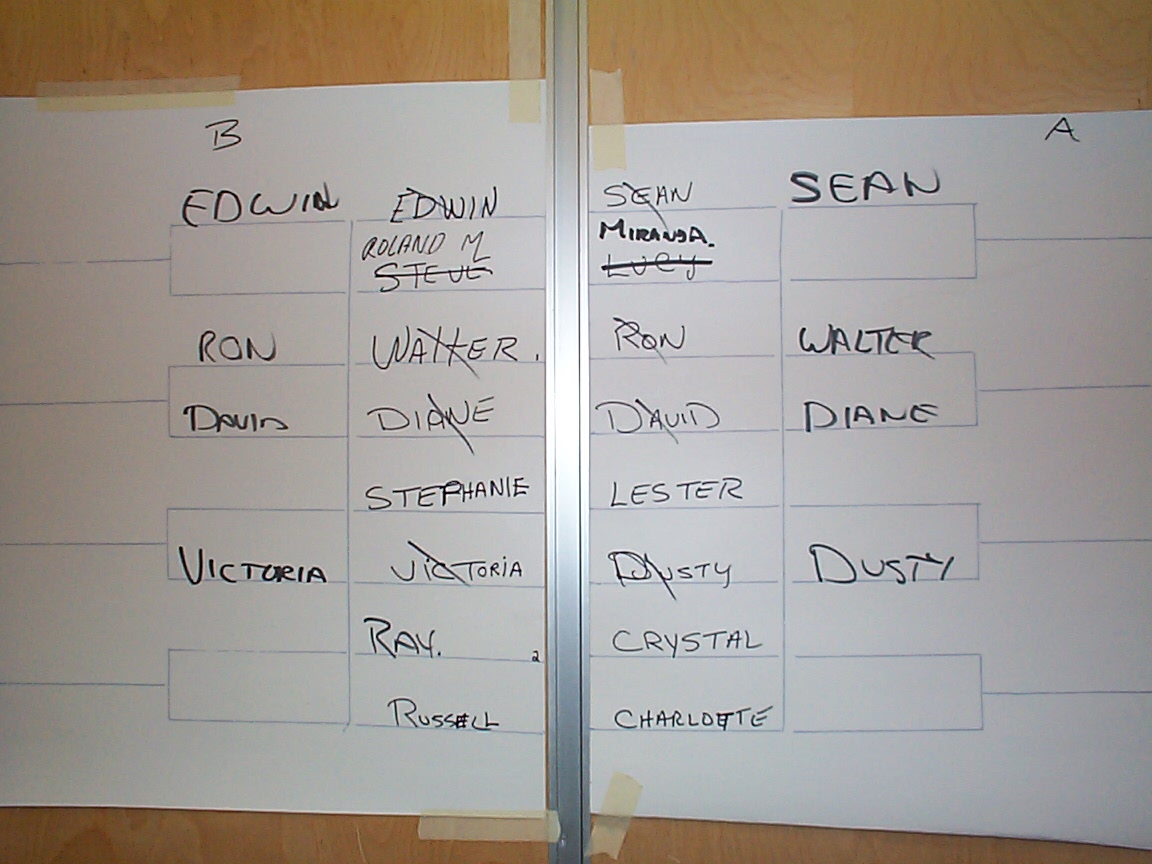 B
EDWIN
RON
DAVID
VICTORIA
EDWIN
ROLAND M
STEVE
WALTER.
DIANE
STEPHANIE
VICTORIA
RAY.
2
RUSSELL
A
SEAN
MIRANDA.
LUCY
RON
DAVID
LESTER
DUSTY
CRYSTAL
CHARLOTTE
SEAN
WALTER
DIANE
DUSTY